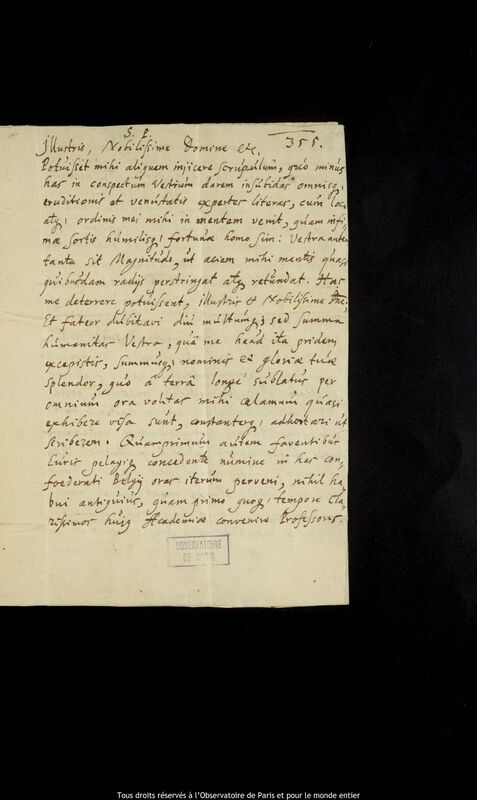 S. P.
355.
Illustris, Nobilissime Domine etc.
Potuisset mihi aliquem injicere scrupulum, quo minus
has in conspectum Vestrum darem insubidas omnisq,
eruditionis et venustatis expertes literas, cum loci
atq; ordinis mei mihi in mentem venit, quam infi-
mæ sortis humilisq; fortunæ homo sim: Vestra autem
tanta sit Magnitudo, ut aciem mihi mentis quasi
quibusdam radijs perstringat atq; retundat. Hæc
me deterrere potuissent, illustris et Nobilissime Dne:
Et fateor dubitavi diu multumq; sed summa
humanitas Vestra, quâ me haud ita pridem
excepistis, summusq; nominis et gloriæ tuæ
splendor, quo â terrâ longe sublatus per
omnium ora volitas mihi calamum quasi
exhibere visa sunt, constanterq; adhortari ut
scriberem. Quamprimum autem faventibus
Euris pelagiq; concedente numine in has con-
foederati Belgij oras iterum perveni, nihil ha-
bui antiquius, quam primo quoq; tempore Cla-
rissimos hujq Academiæ convenire Professores.
OBSERVATOIRE
DE PARIS
Tous droits réservés à l'Observatoire de Paris et pour le monde entier